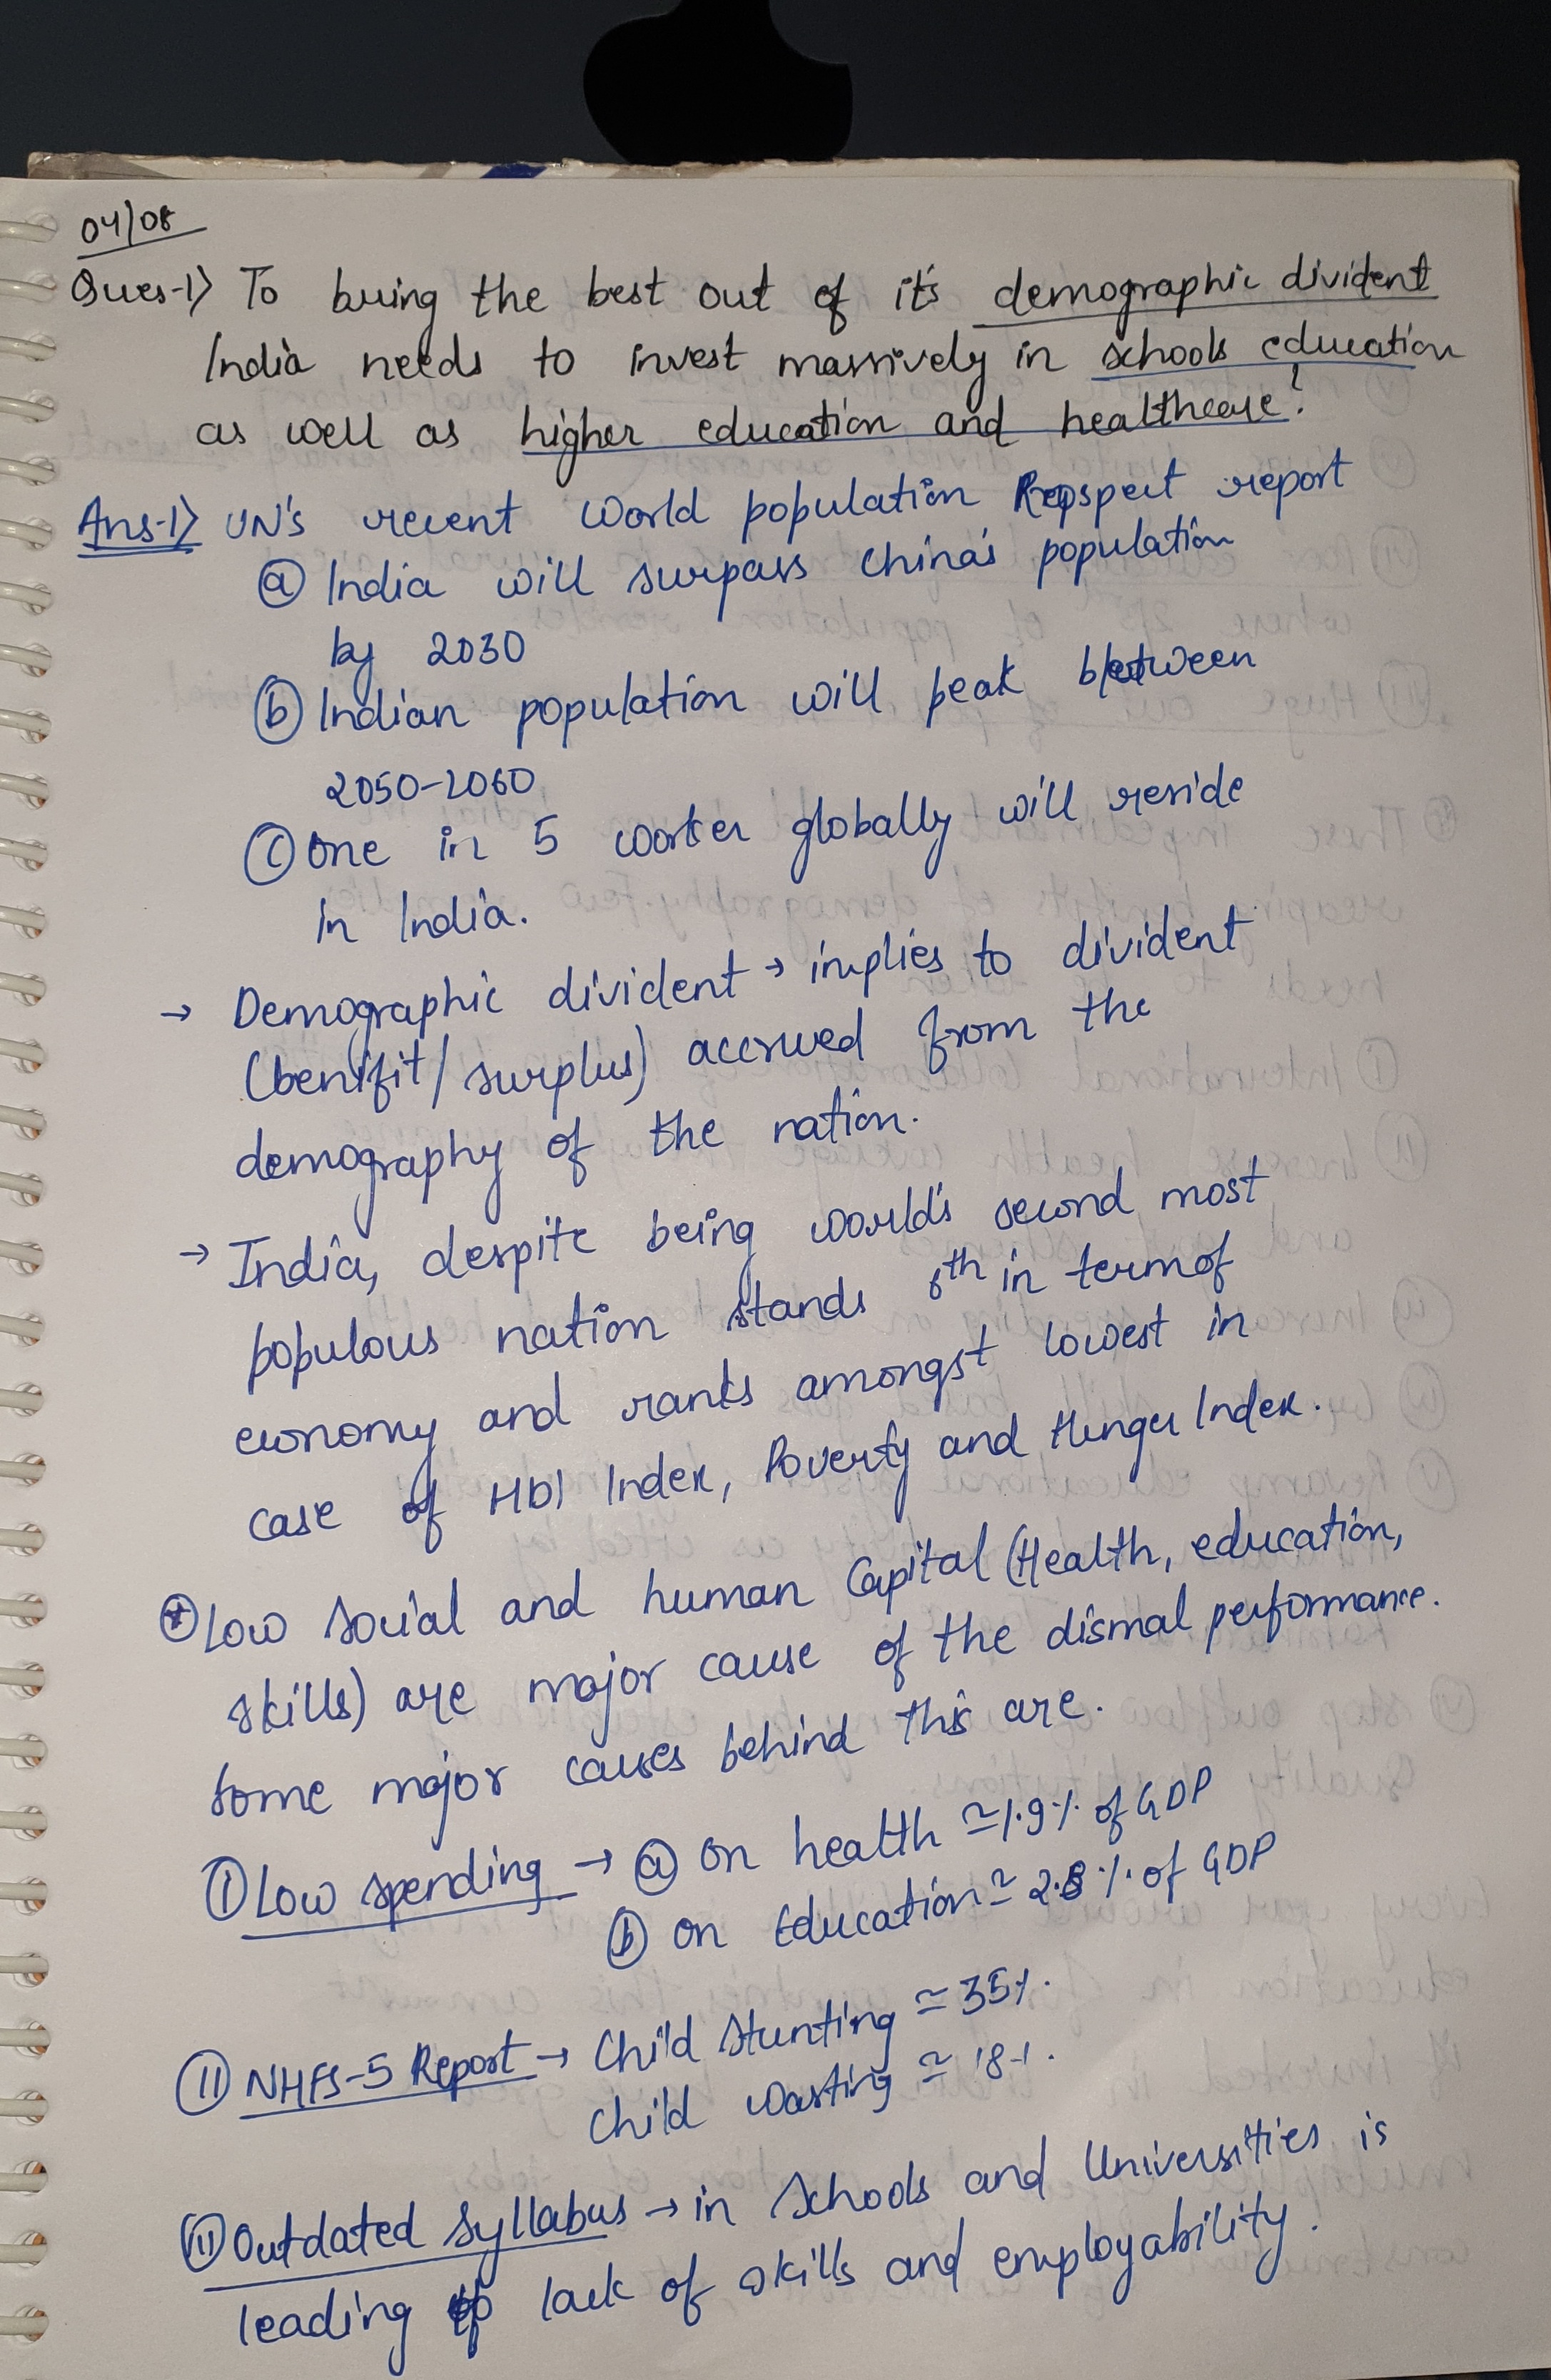 04/08
Ques-1) To bring the best out of it's demographic divident
India needs to invest massively in schools education
as well as higher education and healthcare?
Ans-1) UN's recent world population Repspect report
(a) India will surpass china's population
by 2030
(b) Indian population will peak between
2050-2060
(c) One in 5 worker globally will reside
in India.
→ Demographic divident → implies to divident
(benifit/surplus) accrued from the
demography of the nation.
→ India, despite being world's second most
populous nation stands 6th in term of
economy and ranks amongst lowest in
case of HDI Index, Poverty and Hunger Index.
* Low Social and human Capital (Health, education,
skills) are major cause of the dismal performance.
Some major causes behind this are.
(I) Low spending → (a) on health ≃ 1.9% of GDP
(b) on Education ≃ 2.8% of GDP
(II) NHFS-5 Report → Child Stunting ≃ 35%.
Child Wasting ≃ 18%.
(II) Outdated Syllabus → in Schools and Universities is
leading to lack of skills and employability.